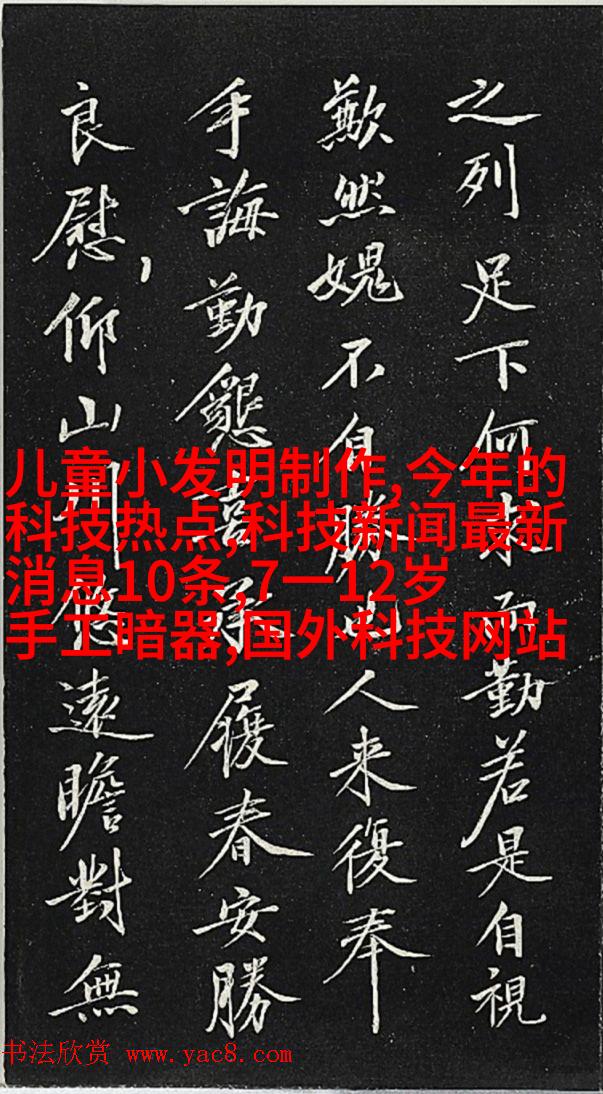 之列足下何求而勤若是自視
歉然媿不自勝人来復奉
手誨勤懇喜承履春安勝
良慰,仰山川悠遠瞻對無
儿童小发明制作,今年的
科技热点,科技新闻最新
消息10条,7一12岁
手工暗器,国外科技网站
书法欣赏 www.yac8.com